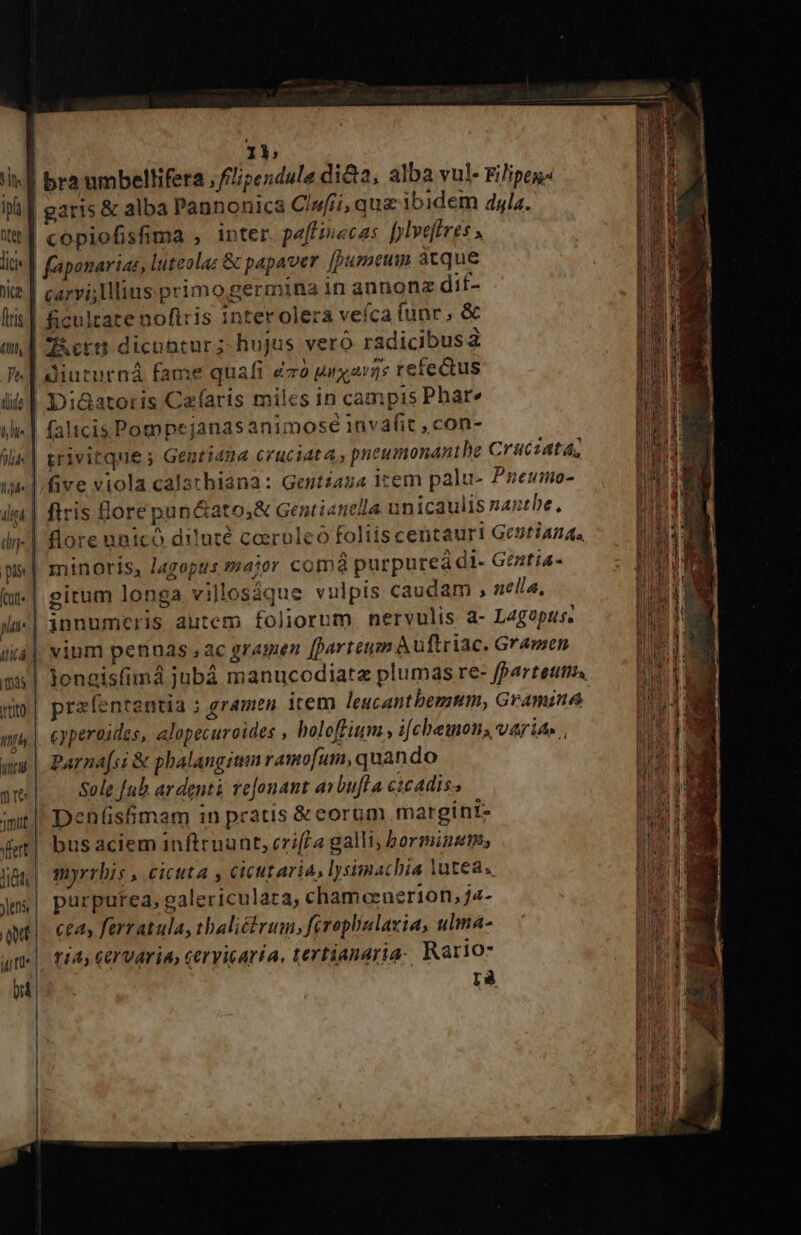 11,
bra umbellifera, filipendula dicta, alba vul- Filipen-
garis & alba Pannonica Clusii, quæ ibidem dula.
copiosisſima, inter paſtinacas ſylveſtres,
ſaponarias, luteolas & papaver ſpumeum atque
carvi; Illius primo germina in annonæ dif-
ficultate noſtris inter olera veſca ſunt, &
dicuntur; hujus verò radicibus à
diuturnâ fame quaſi ἀπὸ μηχανῆς refectus
Dictatoris Cæſaris miles in campis Phar-
ſalicis Pompejanas animosè invaſit, con-
trivitque; Gentiana cruciata, pneumonanthe Cruciata,
ſive viola calathiana: Gentiana item palu- Pneumo-
ſtris flore punctato, & Gentianella unicaulis nanthe,
flore unicò dilutè cœruleò foliis centauri Gentiana,
minoris, lagopus major comâ purpureâ di- Gentia-
gitum longa villosâque vulpis caudam, nella,
innumeris autem foliorum nervulis a- Lagopus.
vium pennas, ac gramen ſparteum Auſtriac. Gramen
longisſimâ jubâ manucodiatæ plumas re- ſparteum,
præſentantia; gramen item leucanthemum, Gramina
cyperoides, alopecuroides, holoſtium, iſchemon, varia,
Parnaſsi & phalangium ramoſum, quando
Sole ſub ardenti reſonant arbuſta cicadis,
Denſisſimam in pratis & eorum margini-
bus aciem inſtruunt, criſta galli, horminum,
myrrhis, cicuta, cicutaria, lysimachia lutea,
purpurea, galericulata, chamœnerion, ja-
cea, ſerratula, thalictrum, ſcrophularia, ulma-
ria, cervaria, cervicaria, tertianaria. Rario-
ra